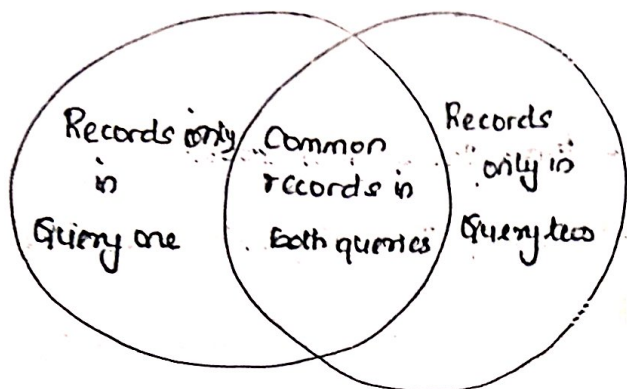 Records only
in
Query one
Common
records in
Both queries
Records
only in
Query two